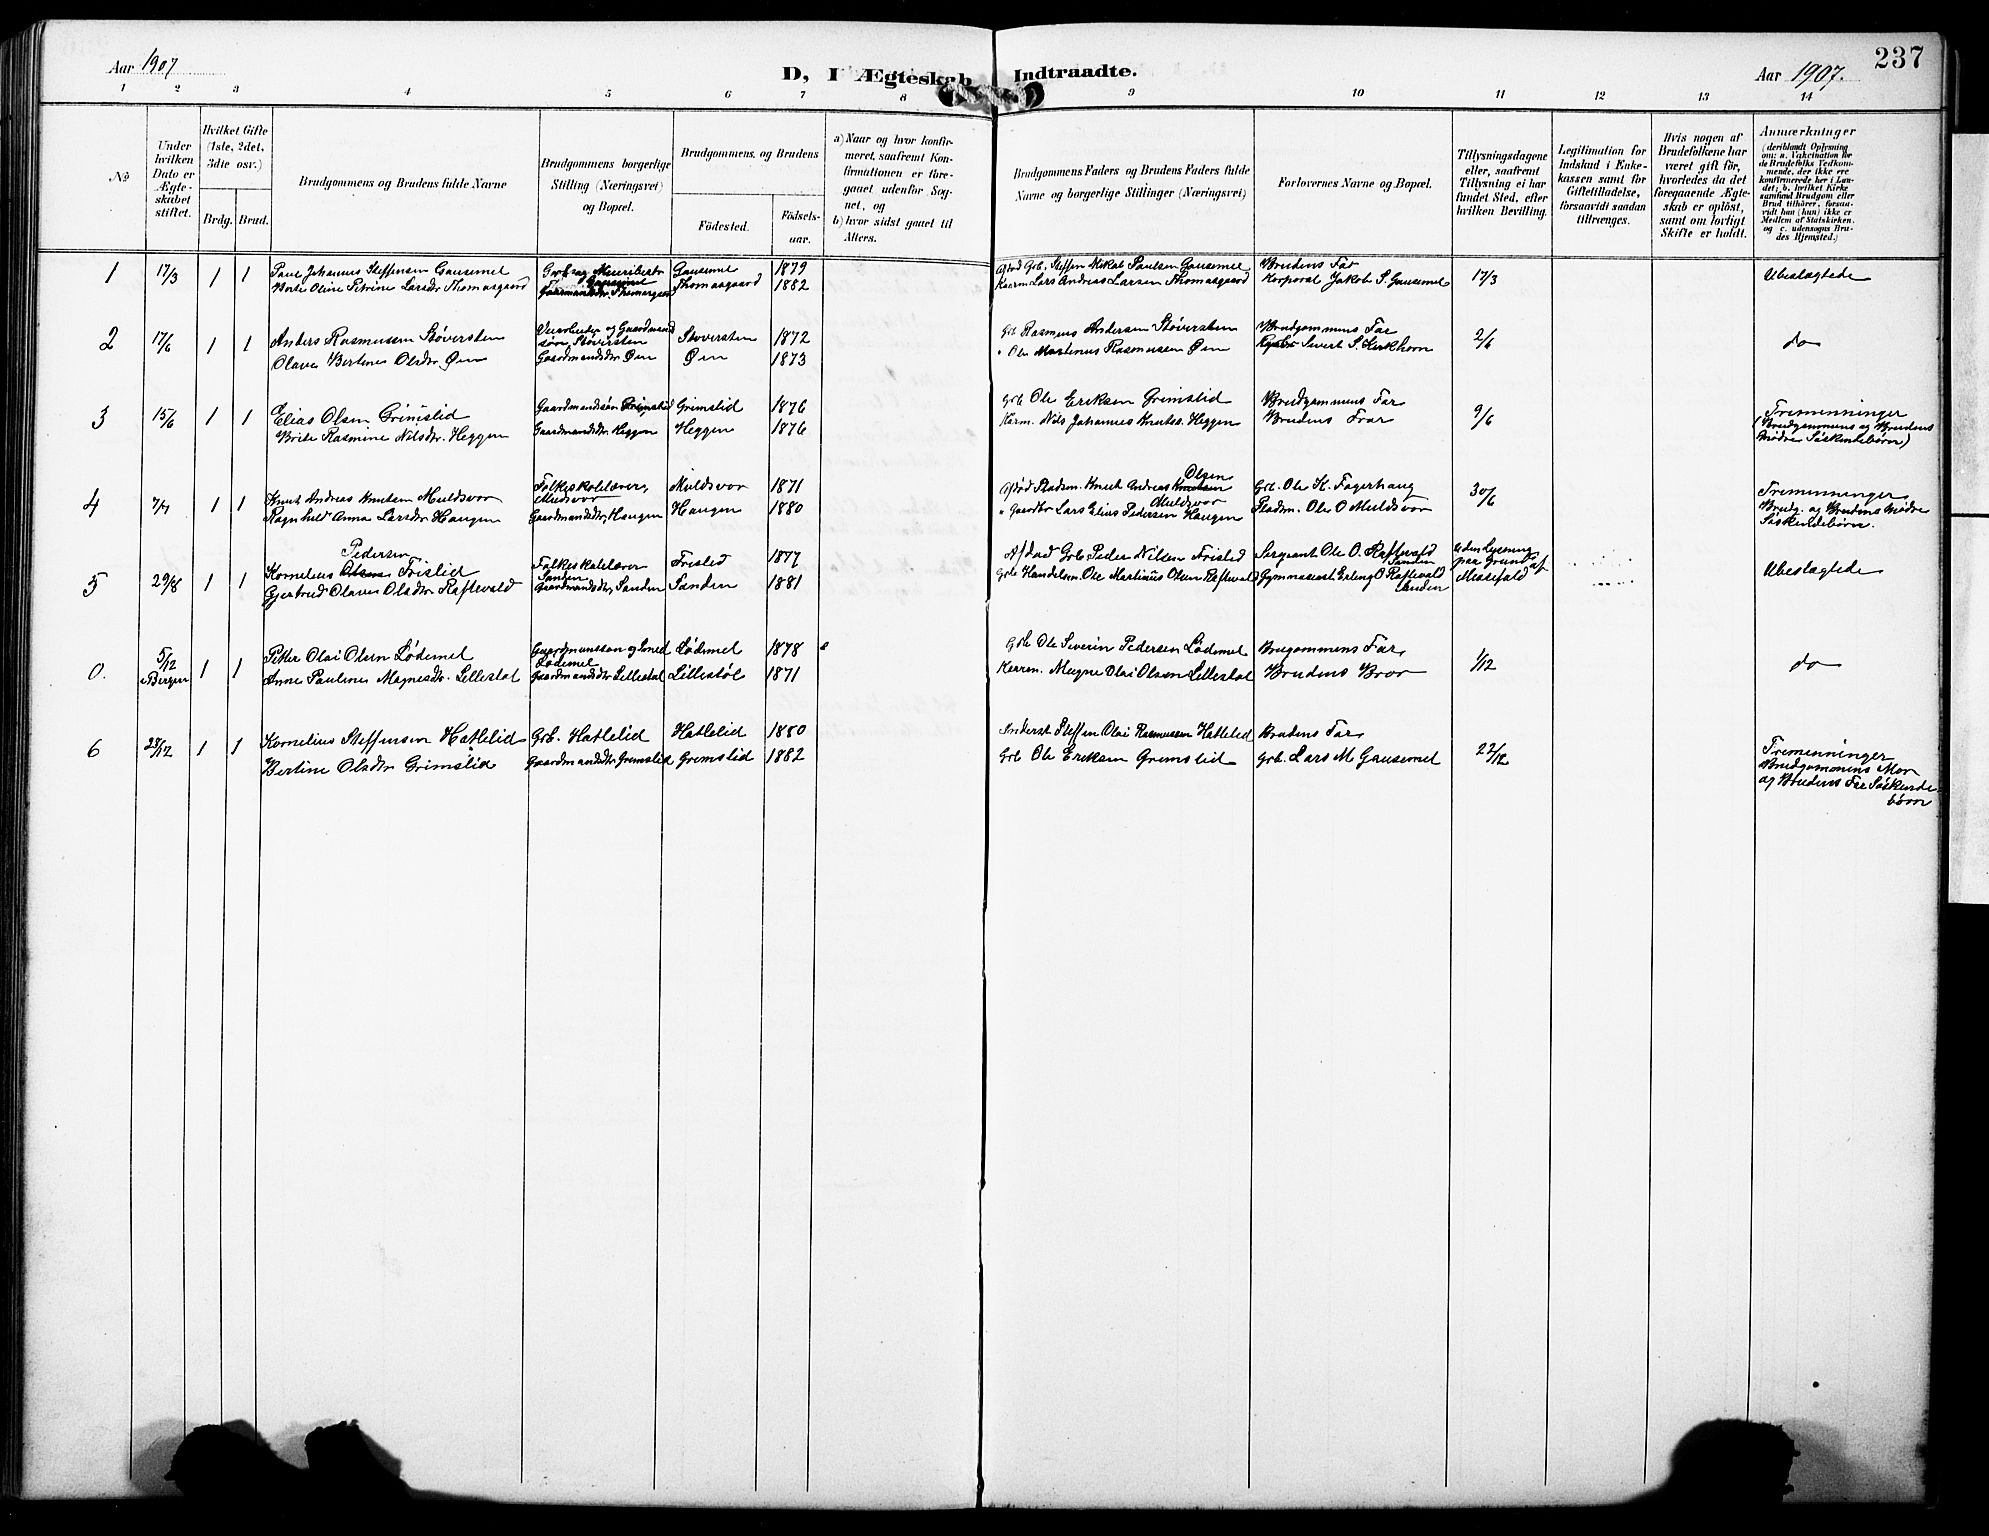 237
Aar 1907
D, I Ægteskab Indtraadte.
Aar 1907.
1 2 3 4 5 6 7 8 9 10 11 12 13 14
No
Under hvilken Dato er Ægteskabet stiftet.
Hvilket Gifte (1ste, 2det, 3die osv.)
Brdg. Brud.
Brudgommens og Brudens fulde Navne
Brudgommens borgerlige Stilling (Næringsvei) og Bopæl.
Brudgommens og Brudens
Födested.
Födsels-aar.
a) Naar og hvor konfirmeret, saafremt Konfirmationen er foregaaet udenfor Sognet, og
b) hvor sidst gaaet til Alters.
Brudgommens Faders og Brudens Faders fulde Navne og borgerlige Stillinger (Næringsvei)
Forlovernes Navne og Bopæl.
Tillysningsdagene eller, saafremt Tillysning ei har fundet Sted, efter hvilken Bevilling.
Legitimation for Indskud i Enkekassen samt for Giftetilladelse, forsaavidt saadan tiltrænges.
Hvis nogen af Brudefolkene har været gift før, hvorledes da det foregaaende Ægteskab er oplöst, samt om lovligt Skifte er holdt.
Anmærkninger (deriblandt Oplysning om: a. Vakcination for de Brudefolks Vedkommende, der ikke ere konfirmerede her i Landet; b. hvilket Kirkesamfund Brudgom eller Brud tilhører, forsaavidt han (hun) ikke er Medlem af Statskirken, og c. udensogns Brudes Hjemsted.)
1 17/3 1 1 Paul Johannes Steffensen Gausemel Grb. og Meieribestr Gausemel Gausemel 1879 Afdød Grb. Steffen Mikal Paulsen Gausemel Brudens Far 17/3 Ubeslægtede
Berte Oline Petrine Larsdr Thomasgaard Gaardmandsdtr. Thomasgaard Thomasgaard 1882 Kaarm Lars Andreas Larsen Thomasgaard Korporal Jakob S. Gausemel
2 17/6 1 1 Anders Rasmussen Støversten Veiarbeider og Gaardmandssøn, Støversten Støversten 1872 Grb. Rasmus Andersen Støversten Brudgommens Far 2/6 do
Olave Bertine Olsdtr Øen Gaardmandsdtr. Øen Øen 1873 " Ole Martinus Rasmussen Øen Sivert S. Kirkhorn
3 15/6 1 1 Elias Olsen Grimslid Gaardmandssøn Grimslid Grimslid 1876 Grb Ole Eriksen Grimslid Brudgommens Far 9/6 Tremenninger
Brite Rasmine Nilsdtr. Heggen Gaardmandsdtr. Heggen Heggen 1876 Kårm. Nils Johannes Knuts. Heggen Brudens Fvar (Brudgommens og Brudens Mødre Søskendebørn)
4 7/7 1 1 Knut Andreas Knutsen Muldsvor Folkeskolelærer, Muldsvor Muldsvor 1871 Afdød Pladsm. Knut Andreas Knutsen Olsen Muldsvor Grb. Ole K. Fagerhaug 30/6 Tremenninger
Ragnhild Anna Larsdtr Haugen Gaardmandsdtr, Haugen Haugen 1880 " Gaardbr Lars Elias Pedersen Haugen Pladsm. Ole O Muldsvor Brudg. og Brudens Mødre Søskendebørn.
5 29/8 1 1 Kornelius Olsen Pedersen Fristid Folkeskolelærer Sanden Fristed 1877 Afdød Grb Peder Nilsen Fristed Sergeant Ole O. Raftevold Sanden Uden Lysning paa Grund af Missefald Ubeslægtede
Gjertrud Olave Olsdtr Raftevald Gaardmandsdtr, Sanden Sanden 1881 Grb Handelsm. Ole Martinus Olsen Raftevald Gymnasiast Erling O Raftevald Sanden
0. 5/12 i Bergen 1 1 Petter Olai Olsen Lødemel Gaardmandssøn og Smed Lødemel Lødemel 1878 Grb Ole Severin Pedersen Lødemel Brugommens Far, 1/12 do
Anne Pauline Magnesdtr. Lillestøl Gaardmandsdtr Lillestøl Lillestøl 1871 Kaarm. Magne Olai Olsen Lillestøl Brudens Bror
6 28/12 1 1 Kornelius Steffensen Hatlelid Grb. Hatlelid Hatlelid 1880 Inderst Steffen Olai Rasmussen Hatlelid Brudens Far, 22/12 Tremenninger
Bertine Olsdtr Grimslid Gaardmandsdtr Grimslid Grimslid 1882 Grb Ole Eriksen Grimslid Grb. Lars M Gausemel Brudgommens Mor og Brudens Far Søskendebørn